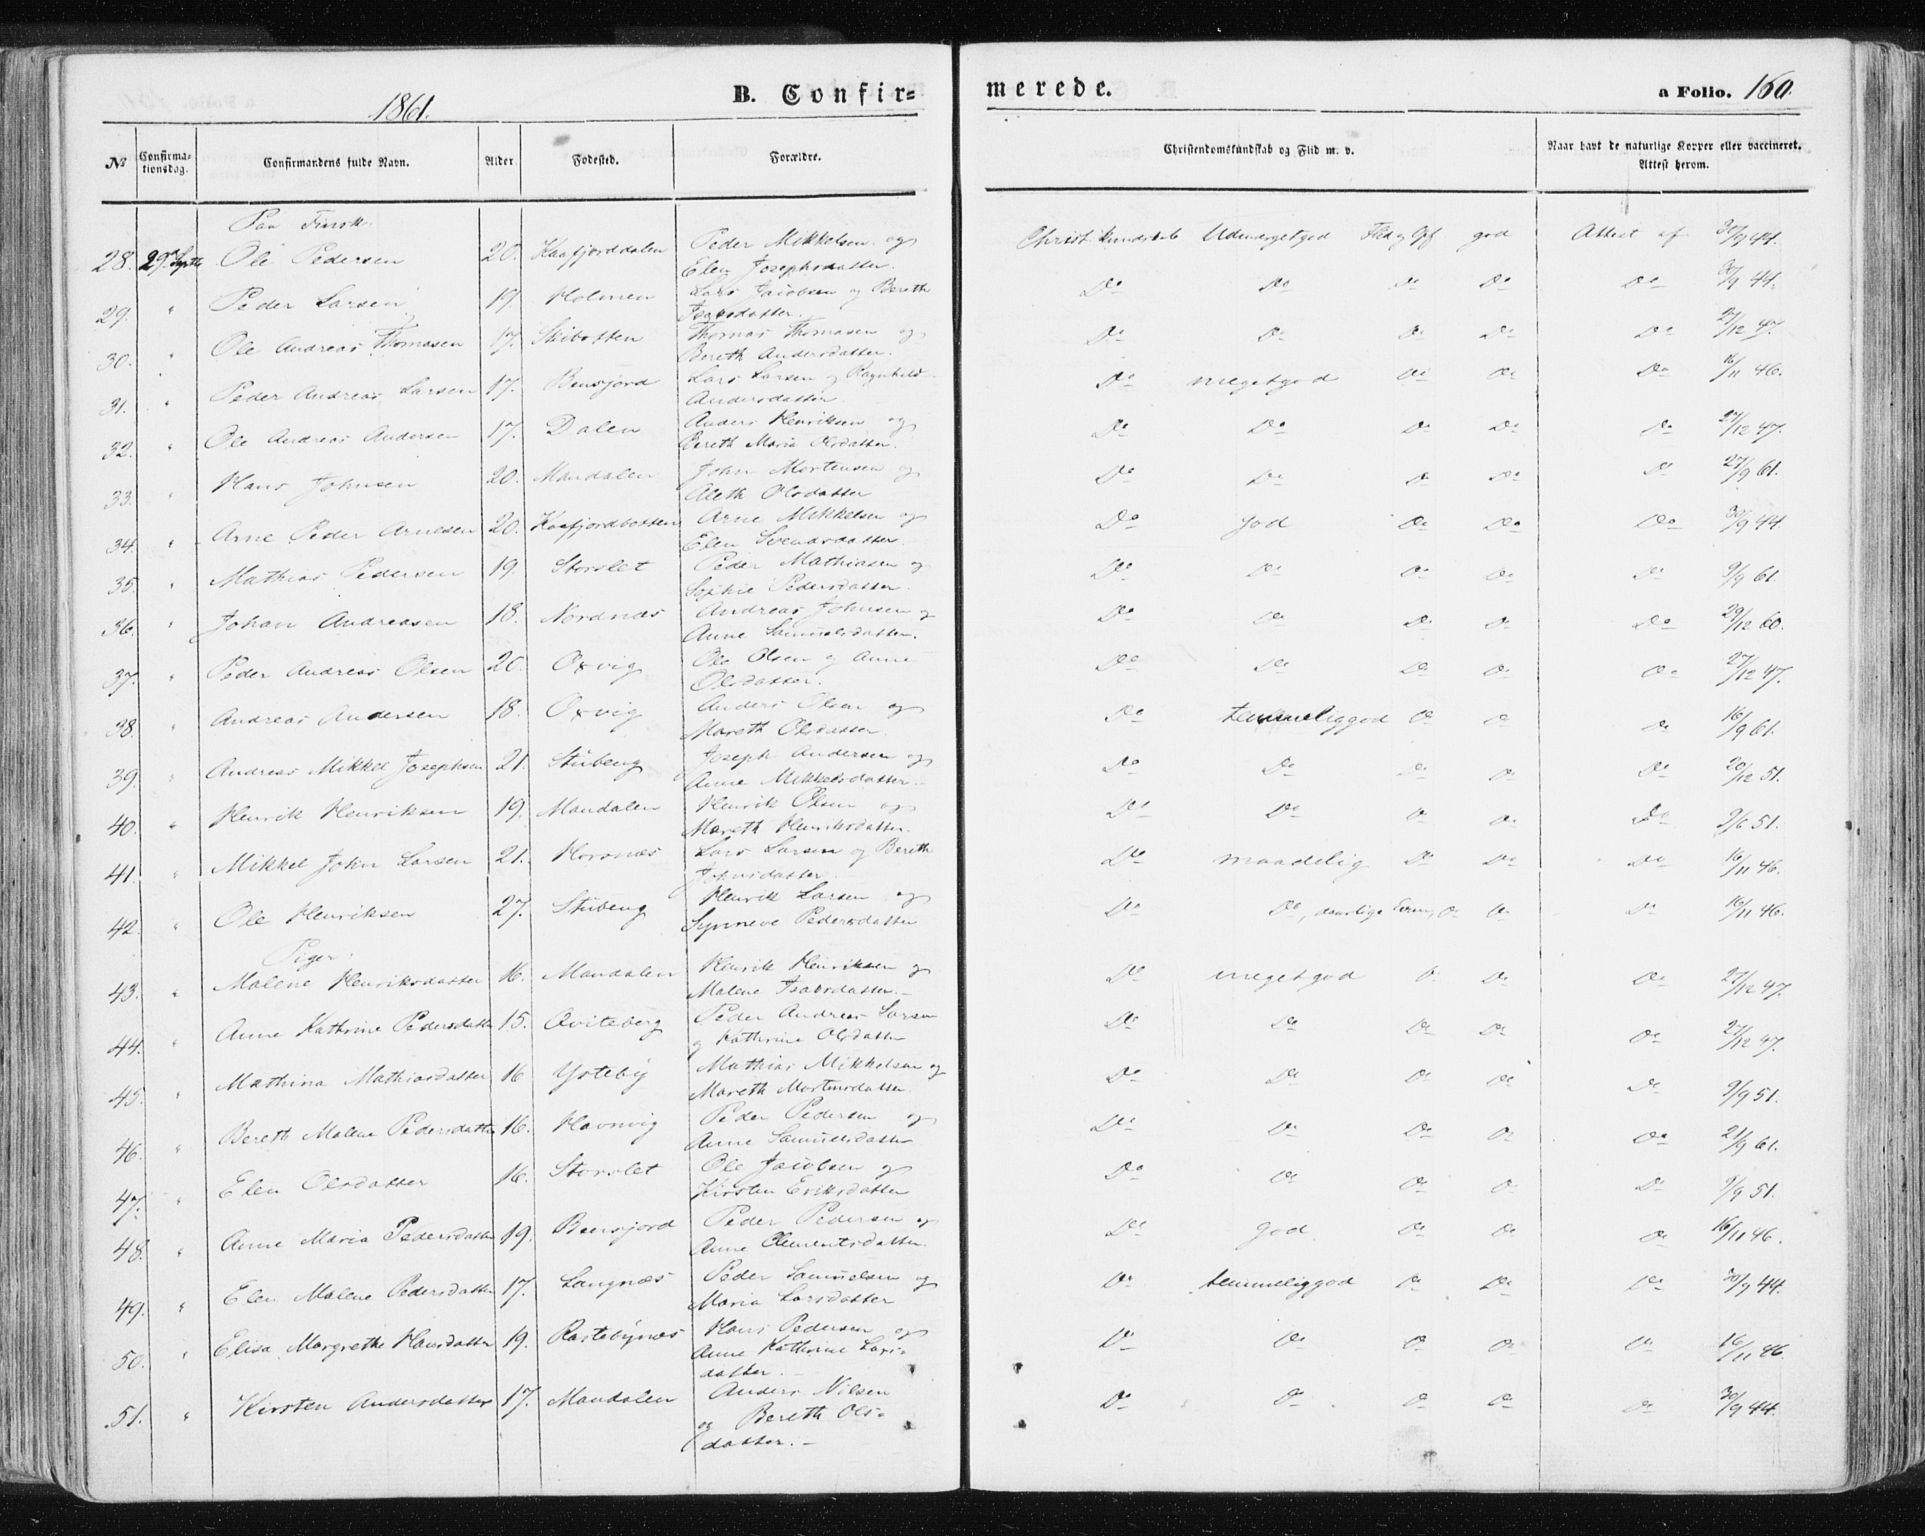 1861.
B. Confir=
merede.
a Folio. 160.
No Confirma-tionsdag. Confirmandens fulde Navn. Alder. Fødested. Forældre. Christendomskundskab og Flid m. v. Naar havt de naturlige Kopper eller vaccineret. Attest herom.
Paa Finsk.
28. 29de Septb Ole Pedersen 20. Kaafjorddalen Peder Mikkelsen og Christ. kundskab Udmærketgod Flid og Opf god Attest af 30/9 44.
Elen Josephsdatter.
29. " Peder Larsen 19. Holmen Lars Jacobsen og Bereth Do Do Do Do Do 30/9 44.
Isaksdatter.
30. " Ole Andreas Thomasen 17. Skibotten Thomas Thomasen og Do Do Do Do Do 27/12 47.
Bereth Andersdatter.
31. " Peder Andreas Larsen 17. Bensjord Lars Larsen og Ragnhild Do megetgod Do Do Do 16/11 46.
Andersdatter
32. " Ole Andreas Andersen 17. Dalen Anders Henriksen og Do Do Do Do Do 27/12 47.
Bereth Maria Olsdatter.
33. " Hans Johnsen 20. Mandalen John Mortensen og Do Do Do Do Do 27/9 61.
Aleth Olsdatter
34. " Arne Peder Arnesen 20. Kaafjordbotten Arne Mikkelsen og Do god Do Do Do 30/9 44
Elen Svendsdatter
35. " Mathias Pedersen 19. Storslet Peder Mathiasen og Do Do Do Do Do 9/9 61.
Sophie Pedersdatter.
36. " Johan Andreasen 18. Nordnæs Andreas Johnsen og Do Do Do Do Do 29/12 60.
Anne Samuelsdatter.
37. " Peder Andreas Olsen 20. Oxvig Ole Olsen og Anne Do Do Do Do Do 27/12 47.
Olsdatter.
38. " Andreas Andersen 18. Oxvig Anders Olsen og Do temmeliggod Do Do Do 16/9 61.
Mareth Olsdatter.
39. " Andreas Mikkel Josephsen 21. Stubeng Joseph Andersen og Do Do Do Do Do 20/12 51.
Anne Mikkelsdatter.
40. " Henrik Henriksen 19. Mandalen Henrik Olsen og Do Do Do Do Do 2/6 51.
Mareth Henriksdatter.
41. " Mikkel John Larsen 21. Horsnæs Lars Larsen og Bereth Do maadelig Do Do Do 16/11 46.
Johnsdatter
42. " Ole Henriksen 27. Stubeng Henrik Larsen og Do Do, daarlige Evner, Do Do Do 16/11 46.
Synneve Pedersdatter
Piger.
43. " Malene Henriksdatter 16. Mandalen Henrik Henriksen og Do megetgod Do Do Do 27/12 47.
Malene Isaksdatter.
44. " Anne Kathrine Pedersdatter 15. Qviteberg Peder Andreas Larsen Do Do Do Do Do 27/12 47.
og Kathrine Olsdatter
45. " Mathina Mathiasdatter 16 Ysteby Mathias Mikkelsen og Do Do Do Do Do 9/9 51.
Mareth Mortensdatter.
46. " Bereth Malene Pedersdatter 16. Havnvig Peder Pedersen og Do Do Do Do Do 21/9 61.
Anne Samuelsdatter
47. " Elen Olsdatter 16. Storslet Ole Jacobsen og Do Do Do Do Do 9/9 51.
Kirsten Eriksdatter
48. " Anne Maria Pedersdatter 19. Bensjord Peder Pedersen og Do god Do Do Do 16/11 46.
Anne Clementsdatter.
49. " Elen Malene Pedersdatter 17. Langnæs Peder Samuelsen og Do temmeliggod Do Do Do 30/9 44.
Maria Larsdatter
50. " Elisa Margrethe Hansdatter 19. Rastebynæs Hans Pedersen og Do Do Do Do Do 16/11 46.
Anne Kathrine Lars-
datter.
51. " Kirsten Andersdatter 17. Mandalen Anders Nilsen Do Do Do Do Do 30/9 44.
og Bereth Ols-
datter.